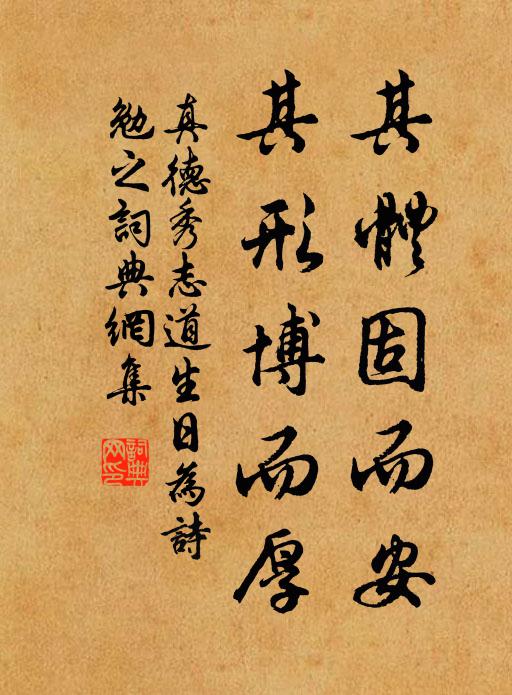 其體固而安
其形博而厚
真德秀志道生日為詩
勉之詞典網集
詞典
网印